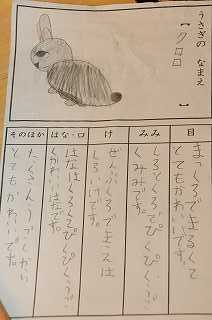 うさぎの なまえ
【 クロロ 】
目
まっくろでまるくて
とてもかわいいです。
みみ
しろとくろでぴくぴく
くみみです。
け
ぜんぶくろでまえは
しろいけです。
はな・口
はなはくろくてぴくぴく
くかわいはなです。
そのほか
たくさんうごくかい
とてもかわいいです。